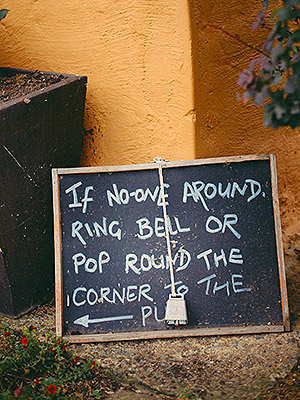 IF NO-ONE AROUND.
RING BELL OR
POP ROUND THE
CORNER TO THE
←